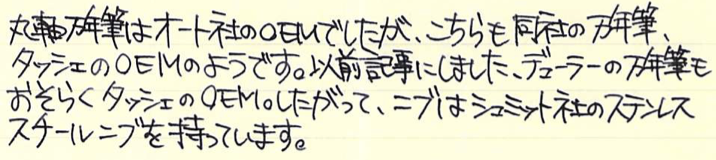 丸軸万年筆はオート社のOEMでしたが、こちらも同社の万年筆、
タッシェのOEMのようです。以前記事にしました、デューラーの万年筆も
おそらくタッシェのOEM。したがって、ニブはシュミット社のステンレス
スチールニブを持っています。